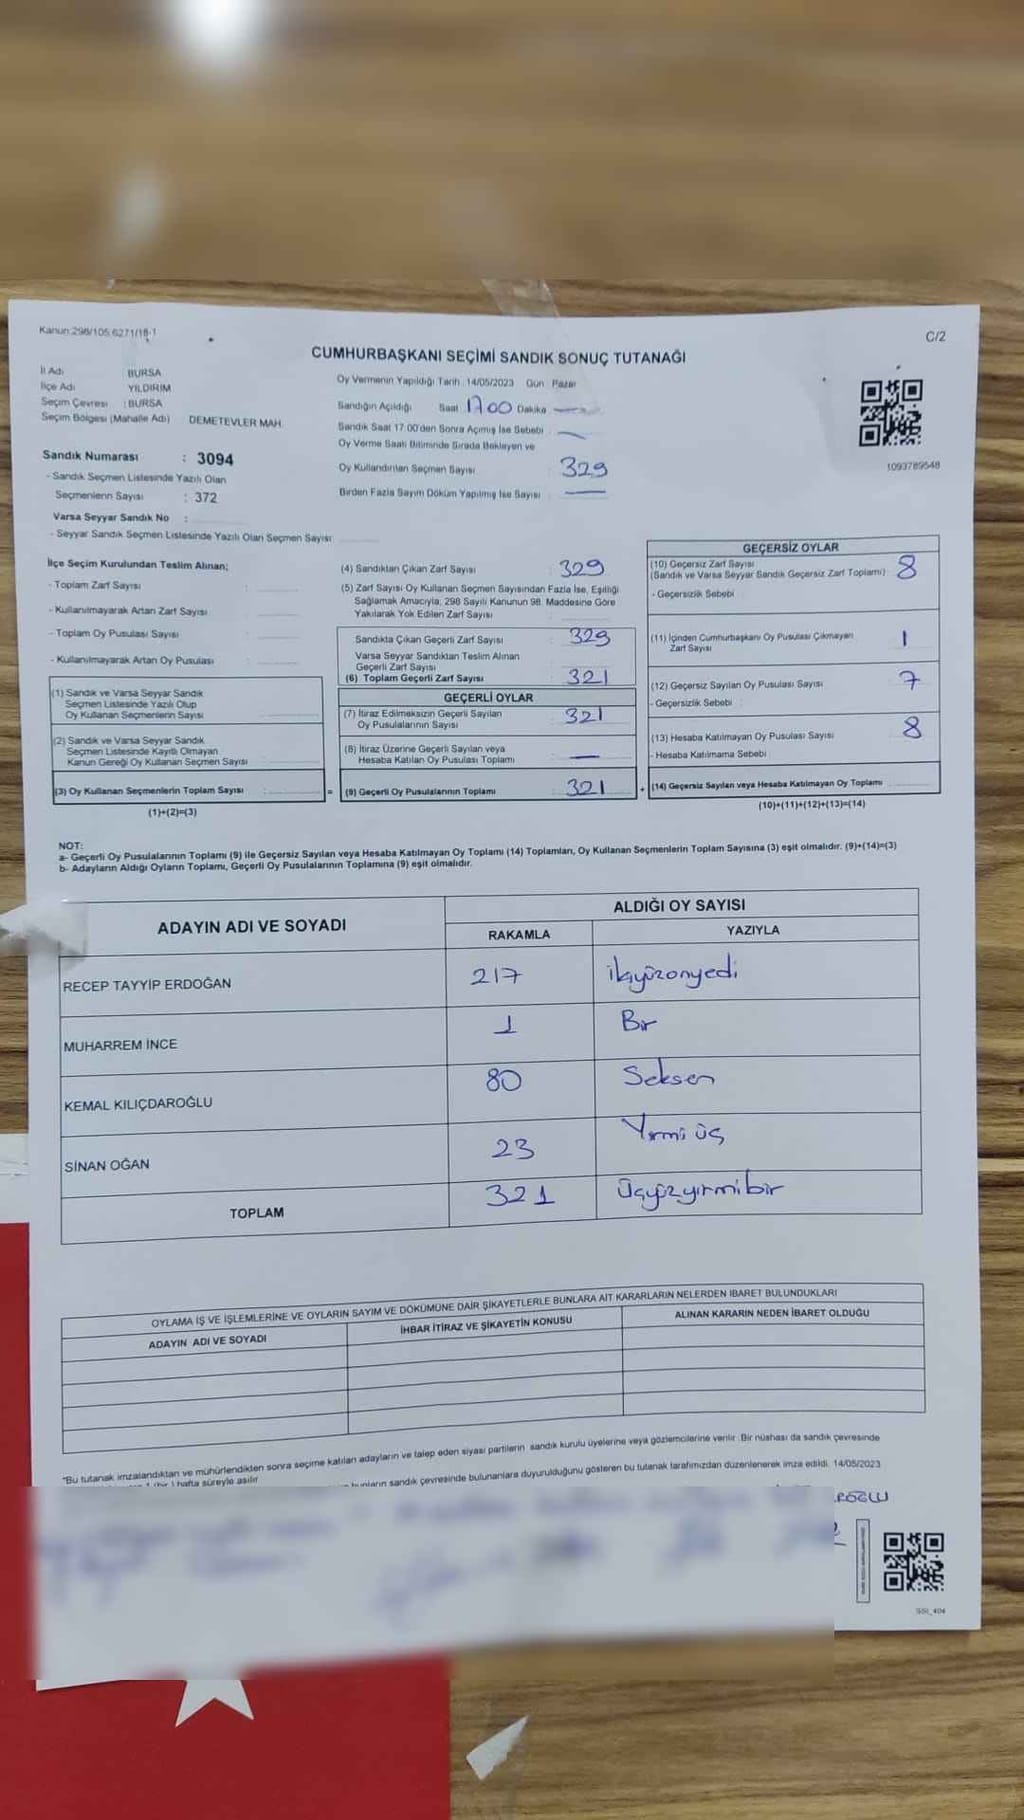 Kanun:298/105,6271/18-1
C/2
CUMHURBAŞKANI SEÇİMİ SANDIK SONUÇ TUTANAĞI
İl Adı BURSA
İlçe Adı YILDIRIM
Seçim Çevresi : BURSA
Seçim Bölgesi (Mahalle Adı) DEMETEVLER MAH.
Sandık Numarası : 3094
- Sandık Seçmen Listesinde Yazılı Olan
Seçmenlerin Sayısı : 372
Varsa Seyyar Sandık No :
- Seyyar Sandık Seçmen Listesinde Yazılı Olan Seçmen Sayısı
Oy Vermenin Yapıldığı Tarih : 14/05/2023 Gün : Pazar
Sandığın Açıldığı Saat 17.00 Dakika —
Sandık Saat 17:00'den Sonra Açımış İse Sebebi —
Oy Verme Saati Bitiminde Sırada Bekleyen ve
Oy Kullandırılan Seçmen Sayısı 329
Birden Fazla Sayım Döküm Yapılmış İse Sayısı —
1093789548
İlçe Seçim Kurulundan Teslim Alınan;
- Toplam Zarf Sayısı :
- Kullanılmayarak Artan Zarf Sayısı
- Toplam Oy Pusulası Sayısı
- Kullanılmayarak Artan Oy Pusulası :
(1) Sandık ve Varsa Seyyar Sandık
Seçmen Listesinde Yazılı Olup
Oy Kullanan Seçmenlerin Sayısı
(2) Sandık ve Varsa Seyyar Sandık
Seçmen Listesinde Kayıtlı Olmayan
Kanun Gereği Oy Kullanan Seçmen Sayısı
(3) Oy Kullanan Seçmenlerin Toplam Sayısı : =
(1)+(2)=(3)
(4) Sandıktan Çıkan Zarf Sayısı : 329
(5) Zarf Sayısı Oy Kullanan Seçmen Sayısından Fazla İse, Eşitliği
Sağlamak Amacıyla, 298 Sayılı Kanunun 98. Maddesine Göre
Yakılarak Yok Edilen Zarf Sayısı
Sandıkta Çıkan Geçerli Zarf Sayısı 329
Varsa Seyyar Sandıktan Teslim Alınan
Geçerli Zarf Sayısı
(6) Toplam Geçerli Zarf Sayısı 321
GEÇERLİ OYLAR
(7) İtiraz Edilmeksizin Geçerli Sayılan
Oy Pusulalarının Sayısı 321
(8) İtiraz Üzerine Geçerli Sayılan veya
Hesaba Katılan Oy Pusulası Toplamı —
(9) Geçerli Oy Pusulalarının Toplamı 321 +
GEÇERSİZ OYLAR
(10) Geçersiz Zarf Sayısı
(Sandık ve Varsa Seyyar Sandık Geçersiz Zarf Toplamı) 8
- Geçersizlik Sebebi
(11) İçinden Cumhurbaşkanı Oy Pusulası Çıkmayan
Zarf Sayısı 1
(12) Geçersiz Sayılan Oy Pusulası Sayısı 7
- Geçersizlik Sebebi :
(13) Hesaba Katılmayan Oy Pusulası Sayısı 8
- Hesaba Katılmama Sebebi
(14) Geçersiz Sayılan veya Hesaba Katılmayan Oy Toplamı
(10)+(11)+(12)+(13)=(14)
NOT:
a- Geçerli Oy Pusulalarının Toplamı (9) ile Geçersiz Sayılan veya Hesaba Katılmayan Oy Toplamı (14) Toplamları, Oy Kullanan Seçmenlerin Toplam Sayısına (3) eşit olmalıdır. (9)+(14)=(3)
b- Adayların Aldığı Oyların Toplamı, Geçerli Oy Pusulalarının Toplamına (9) eşit olmalıdır.
ADAYIN ADI VE SOYADI ALDIĞI OY SAYISI
RAKAMLA YAZIYLA
RECEP TAYYİP ERDOĞAN 217 ikiyüzonyedi
MUHARREM İNCE 1 Bir
KEMAL KILIÇDAROĞLU 80 Seksen
SİNAN OĞAN 23 Yirmi üç
TOPLAM 321 Üçyüzyirmibir
OYLAMA İŞ VE İŞLEMLERİNE VE OYLARIN SAYIM VE DÖKÜMÜNE DAİR ŞİKAYETLERLE BUNLARA AİT KARARLARIN NELERDEN İBARET BULUNDUKLARI
ADAYIN ADI VE SOYADI İHBAR İTİRAZ VE ŞİKAYETİN KONUSU ALINAN KARARIN NEDEN İBARET OLDUĞU
"Bu tutanak imzalandıktan ve mühürlendikten sonra seçime katılan adayların ve talep eden siyasi partilerin sandık kurulu üyelerine veya gözlemcilerine verilir. Bir nüshası da sandık çevresinde
1 (bir) hafta süreyle asılır
bunların sandık çevresinde bulunanlara duyurulduğunu gösteren bu tutanak tarafımızdan düzenlenerek imza edildi. 14/05/2023
ROĞLU